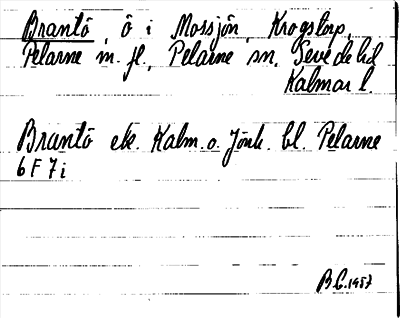 Brantö, ö i Mossjön, Krogstorp,
Pelarne m. fl., Pelarne sn, Sevede hd
Kalmar l.
Brantö ek. Kalm. o. Jönk. bl. Pelarne
6 F 7 i
B.C. 1957